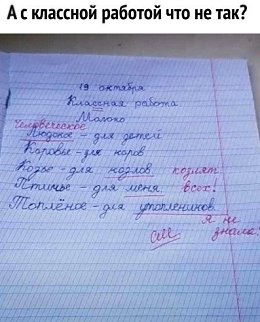 А с классной работой что не так?
19 октября
Классная работа
Молоко
Человеческое
Людское - для детей
Коровье - для коров
Козье - для козлов козлят
Птичье - для меня всех!
Топлёное - для утопленников.
Я не
знала!
см